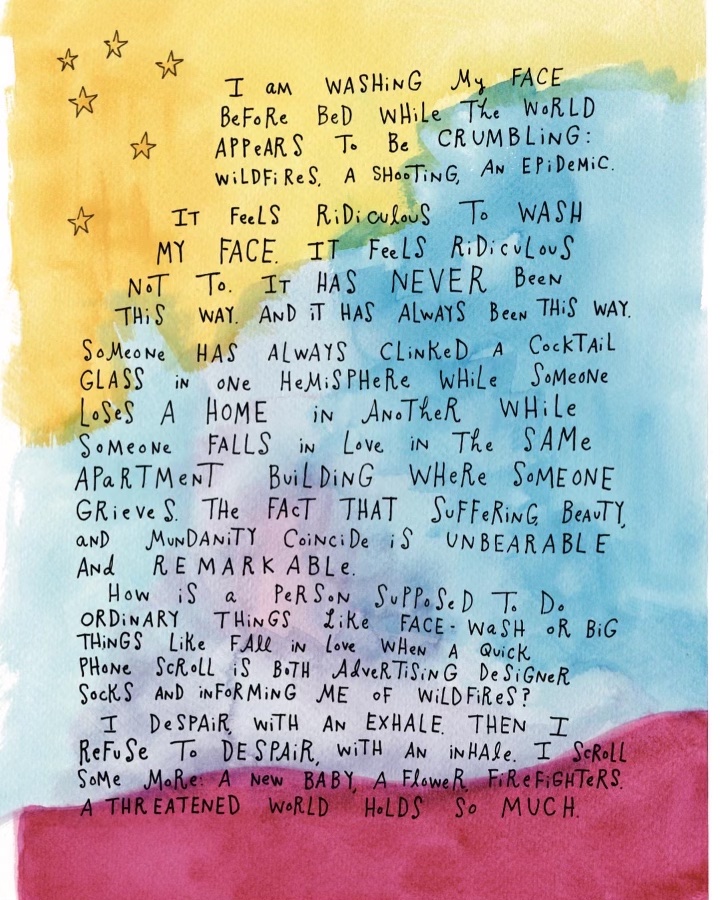 I am WASHiNG My FACE
BeFoRe BeD WHiLe The WoRLD
APPeARS To Be CRUMBLiNG:
WiLDFiReS, A SHooTiNG, AN EPiDeMiC.
IT FeeLS RiDiculouS To WASH
MY FACE. IT FeeLS RiDicuLouS
NoT To. IT HAS NEVER BeeN
THiS WAY. AND iT HAS ALWAYS BeeN THiS WAY.
SoMeone HAS ALWAYS CLiNKeD A CockTAiL
GLASS iN oNe HeMiSPHeRe WHiLe SoMeoNe
LoSeS A HOME iN ANoTHeR WHiLe
SoMeone FALLS iN Love iN The SAMe
APaRTMeNT BuiLDiNG WHeRe SoMEONE
GRieveS. THe FAcT THAT SuFFeRiNG, BeAuTY,
aND MuNDANiTY CoiNciDe iS UNBEARABLE
ANd REMARKABLe.
How iS a PeRSoN SuPPoSeD To Do
ORDiNARY THiNGS LiKe FACE-WaSH oR BiG
THiNGS LiKe FAll iN Love WHeN A QuicK
PHoNe ScRoLL iS BoTH AdveRTiSiNG DeSiGNeR
SocKS AND iNFoRMiNG ME oF WiLDFiReS?
I DeSPAiR, WiTH AN EXHALE. THEN I
ReFuSe To DESPAiR, WiTH AN iNHALe. I ScRoLL
SoMe MoRe: A New BABY, A FloweR, FiReFiGHTeRS.
A THREATENED WoRLD HoLDS So MUCH.